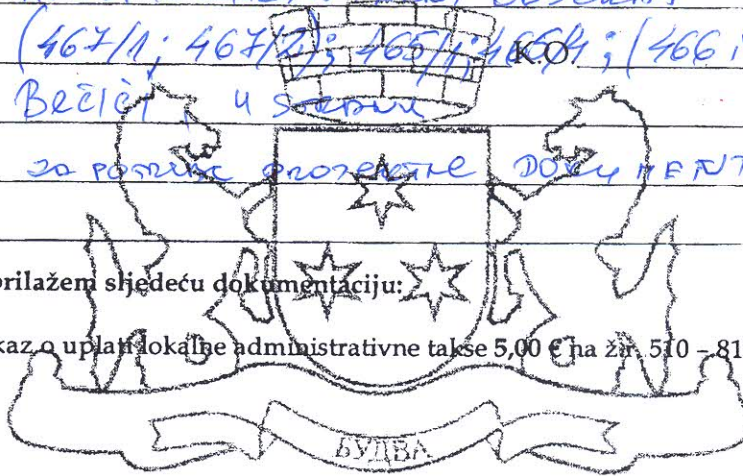 (467/1; 467/2); 465/1; 466/1; (466 i
K.O.
Bečići, u
za potrebe DOKUMENT
prilažem sljedeću dokumentaciju:
kaz o uplati lokalne administrativne takse 5,00 € na ž.r. 510 – 81
БУДВА